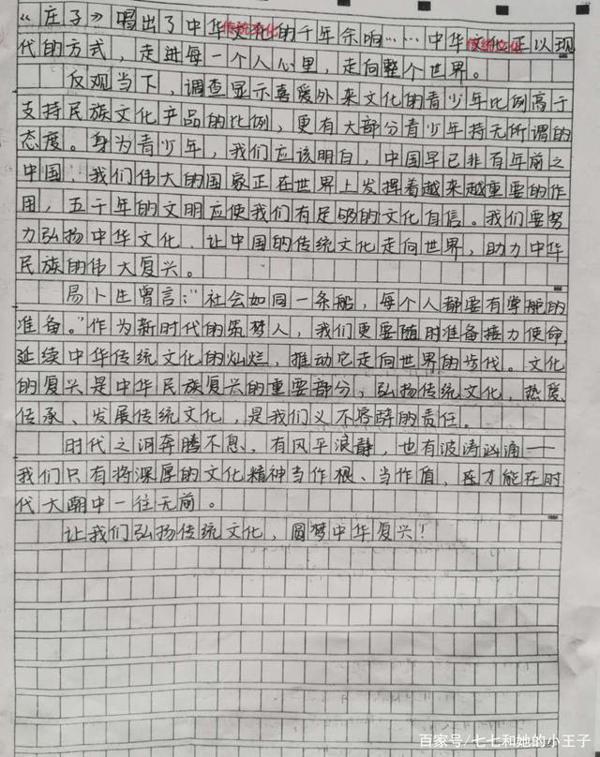 《庄子》唱出了中华传统文化的千年余响……中华传统文化正以现
代的方式，走进每一个人心里，走向整个世界。
反观当下，调查显示喜爱外来文化的青少年比例高于
支持民族文化产品的比例，更有大部分青少年持无所谓的
态度。身为青少年，我们应该明白，中国早已非百年前之
中国，我们伟大的国家正在世界上发挥着越来越重要的作
用，五千年的文明应使我们有足够的文化自信。我们要努
力弘扬中华文化，让中国的传统文化走向世界，助力中华
民族的伟大复兴。
易卜生曾言：“社会如同一条船，每个人都要有掌舵的
准备。”作为新时代的筑梦人，我们更要随时准备接力使命，
延续中华传统文化的灿烂，推动它走向世界的步伐。文化
的复兴是中华民族复兴的重要部分，弘扬传统文化，热爱、
传承、发展传统文化，是我们义不容辞的责任。
时代之河奔腾不息，有风平浪静，也有波涛汹涌——
我们只有将深厚的文化精神当作根、当作盾，才能在时
代大潮中一往无前。
让我们弘扬传统文化，圆梦中华复兴！
百家号/七七和她的小王子